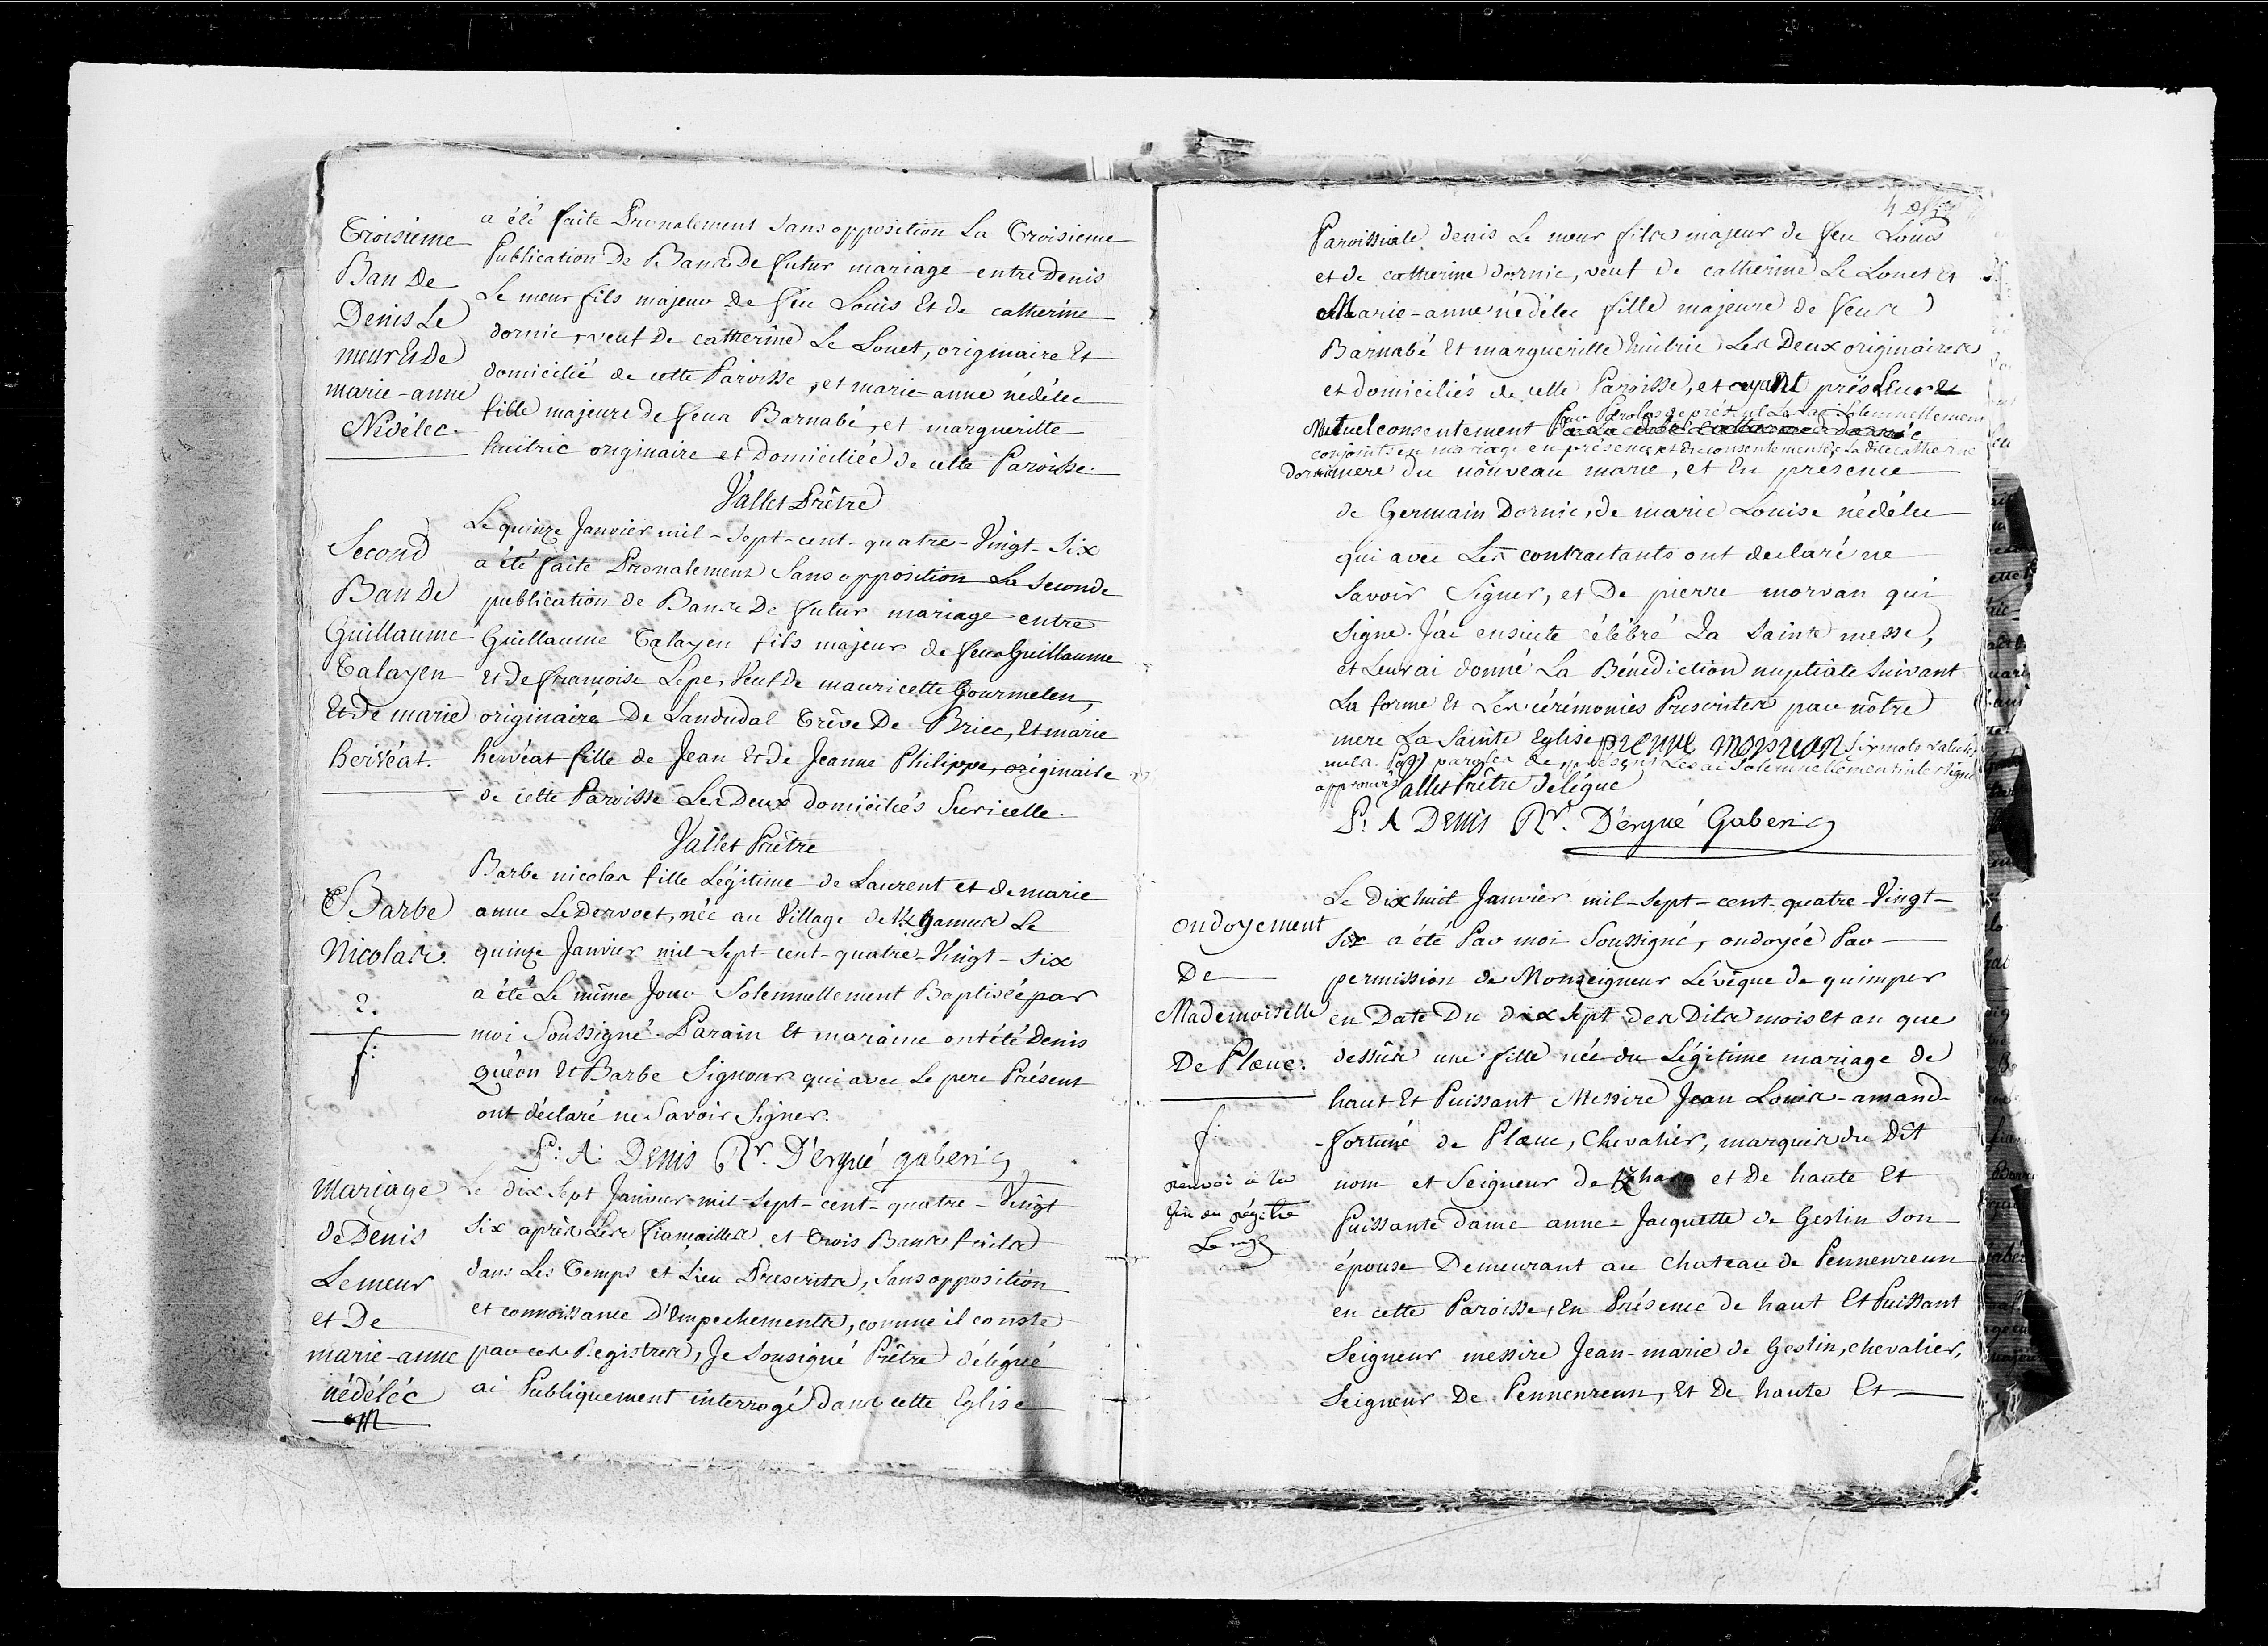 Troisième
Ban de
Denis Le
meur Et de
marie-anne
Nédélec.
a été faite Pronalement sans opposition La Troisieme
Publication De Bans De futur mariage entre Denis
Le meur fils majeur de feu Louis Et de catherine
dornic, veuf de catherine Le Louet, originaire Et
domicilié de cette Paroisse, et marie-anne nédélec
fille majeure de feus Barnabé, et margueritte
huitric originaire et Domiciliée de cette Paroisse.
Vallet Prêtre
Second
Ban de
Guillaume
Talayen
Et de marie
hervéat.
Le quinze Janvier mil-sept-cent-quatre-Vingt-Six
a été faite Pronalement Sans opposition La seconde
publication de Bans De futur mariage entre
Guillaume Talayen fils majeur de feus Guillaume
et De françoise Lepe, Veuf de mauricette Gourmelen,
originaire De Landudal Trêve De Briec, Et marie
hervéat fille de Jean Et de Jeanne Philippe, originaire
de cette Paroisse Les Deux Domiciliés Suricelle.
Vallet Prêtre
B Barbe
Nicolas.
2.
f:
Barbe nicolas fille Légitime de Laurent et de marie
anne Le Dervoet, née au Village de Le
quinze Janvier mil-sept-cent-quatre-Vingt-Six
a été Le même Jour Solennellement Baptisée par
moi Soussigné. Parain Et maraine ont été Denis
Quéon Et Barbe Signour qui avec Le pere Présent
ont déclaré ne Savoir Signer.
P: A: Denis Rr. D'ergué gaberic
Mariage
de Denis
Le meur
et De
marie-anne
nédéléc
M
Le dix Sept Janvier mil-sept-cent-quatre-Vingt
Six après Les fiançailles et trois Bans faits
dans Les Temps et Lieu Prescrits, Sans opposition
et connoissance D'Empechements, comme il conste
par ces Registres, Je Sousigné Prêtre délégué
ai Publiquement interrogé dans cette Eglise
4
Paroissiale, denis Le meur fils majeur de feu Louis
et de catherine dornic, veuf de catherine Le Louet Et
Marie-anne nédélec fille majeure de feus
Barnabé Et margueritte huitric Les Deux originaires
et domiciliés de cette Paroisse, et ayant pris Leur
Par Paroles de présent Les ai Solemnellement
Mutuel consentement
conjoints en mariage en présence et Du consentement de La dite catherine
Dornic mere du nouveau marié, et En présence
de Germain Dornic, de marie Louise nédélec
qui avec Les contractants ont declaré ne
Savoir Signer, et De pierre morvan qui
Signe. J'ai ensuite célébré La Sainte messe,
et Leur ai donné La Bénédiction nuptiale Suivant
La forme Et Les cérémonies Prescrites par nôtre
mere La Sainte Eglise pierre morvan Six mots raturés
nuls. Par paroles de présent Les ai Solemnellement interligne
approuvé Vallet Prêtre délégué
P: A Denis Rr. D'ergué Gaberic
ondoyement
De
Mademoiselle
De Plœuc.
f:
renvoi à la
fin du régitre
Le dix huit Janvier mil-sept-cent quatre-Vingt-
Six a été Par moi Soussigné, ondoyée Par
permission de Monseigneur L'évêque de quimper
en Date Du dix Sept des Dits mois et an que
dessûs une fille née du Légitime mariage de
haut Et Puissant Messire Jean Louis-amand-
-fortuné de Plœuc, Chevalier, marquis du Dit
nom et Seigneur de et De haute Et
Puissante Dame anne-Jacquette de Geslin Son
épouse Demeurant au Chateau de Pennenreun
en cette Paroisse, En Présence de haut Et Puissant
Seigneur messire Jean-marie de Geslin, chevalier,
Seigneur De Pennenreun, Et De haute Et